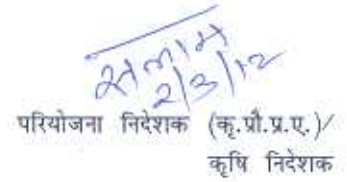 सलाम
2/3/12
परियोजना निदेशक (कृ.प्रौ.प्र.ए.)/
कृषि निदेशक